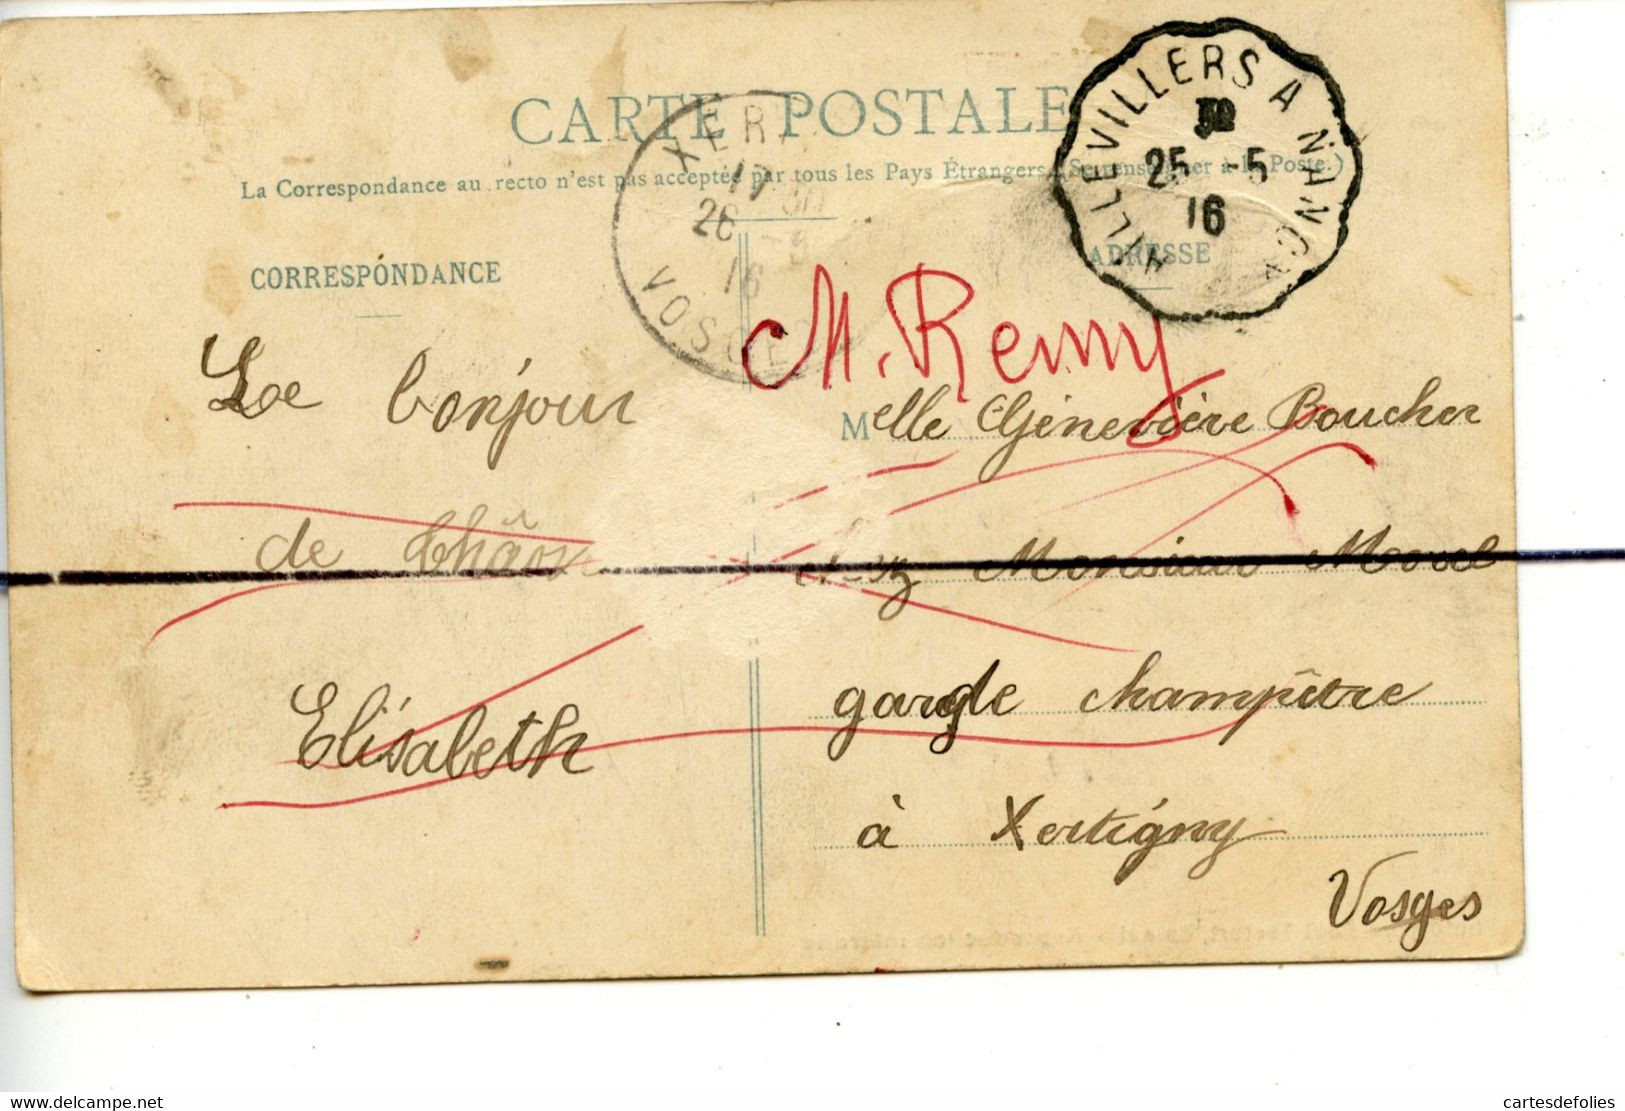 CARTE POSTALE
La Correspondance au recto n'est pas acceptée par tous les Pays Étrangers. (Se renseigner à la Poste.)
CORRESPONDANCE
ADRESSE
AILLEVILLERS A NANCY
25 - 5
16
XER
17 30
26 - 5
16
VOSGES
M. Remy
Le bonjour
de
Elisabeth
Melle Géneviève Boucher
chez Monsieur Morel
garde champêtre
à Xertigny
Vosges
delcampe.net
cartesdefolies